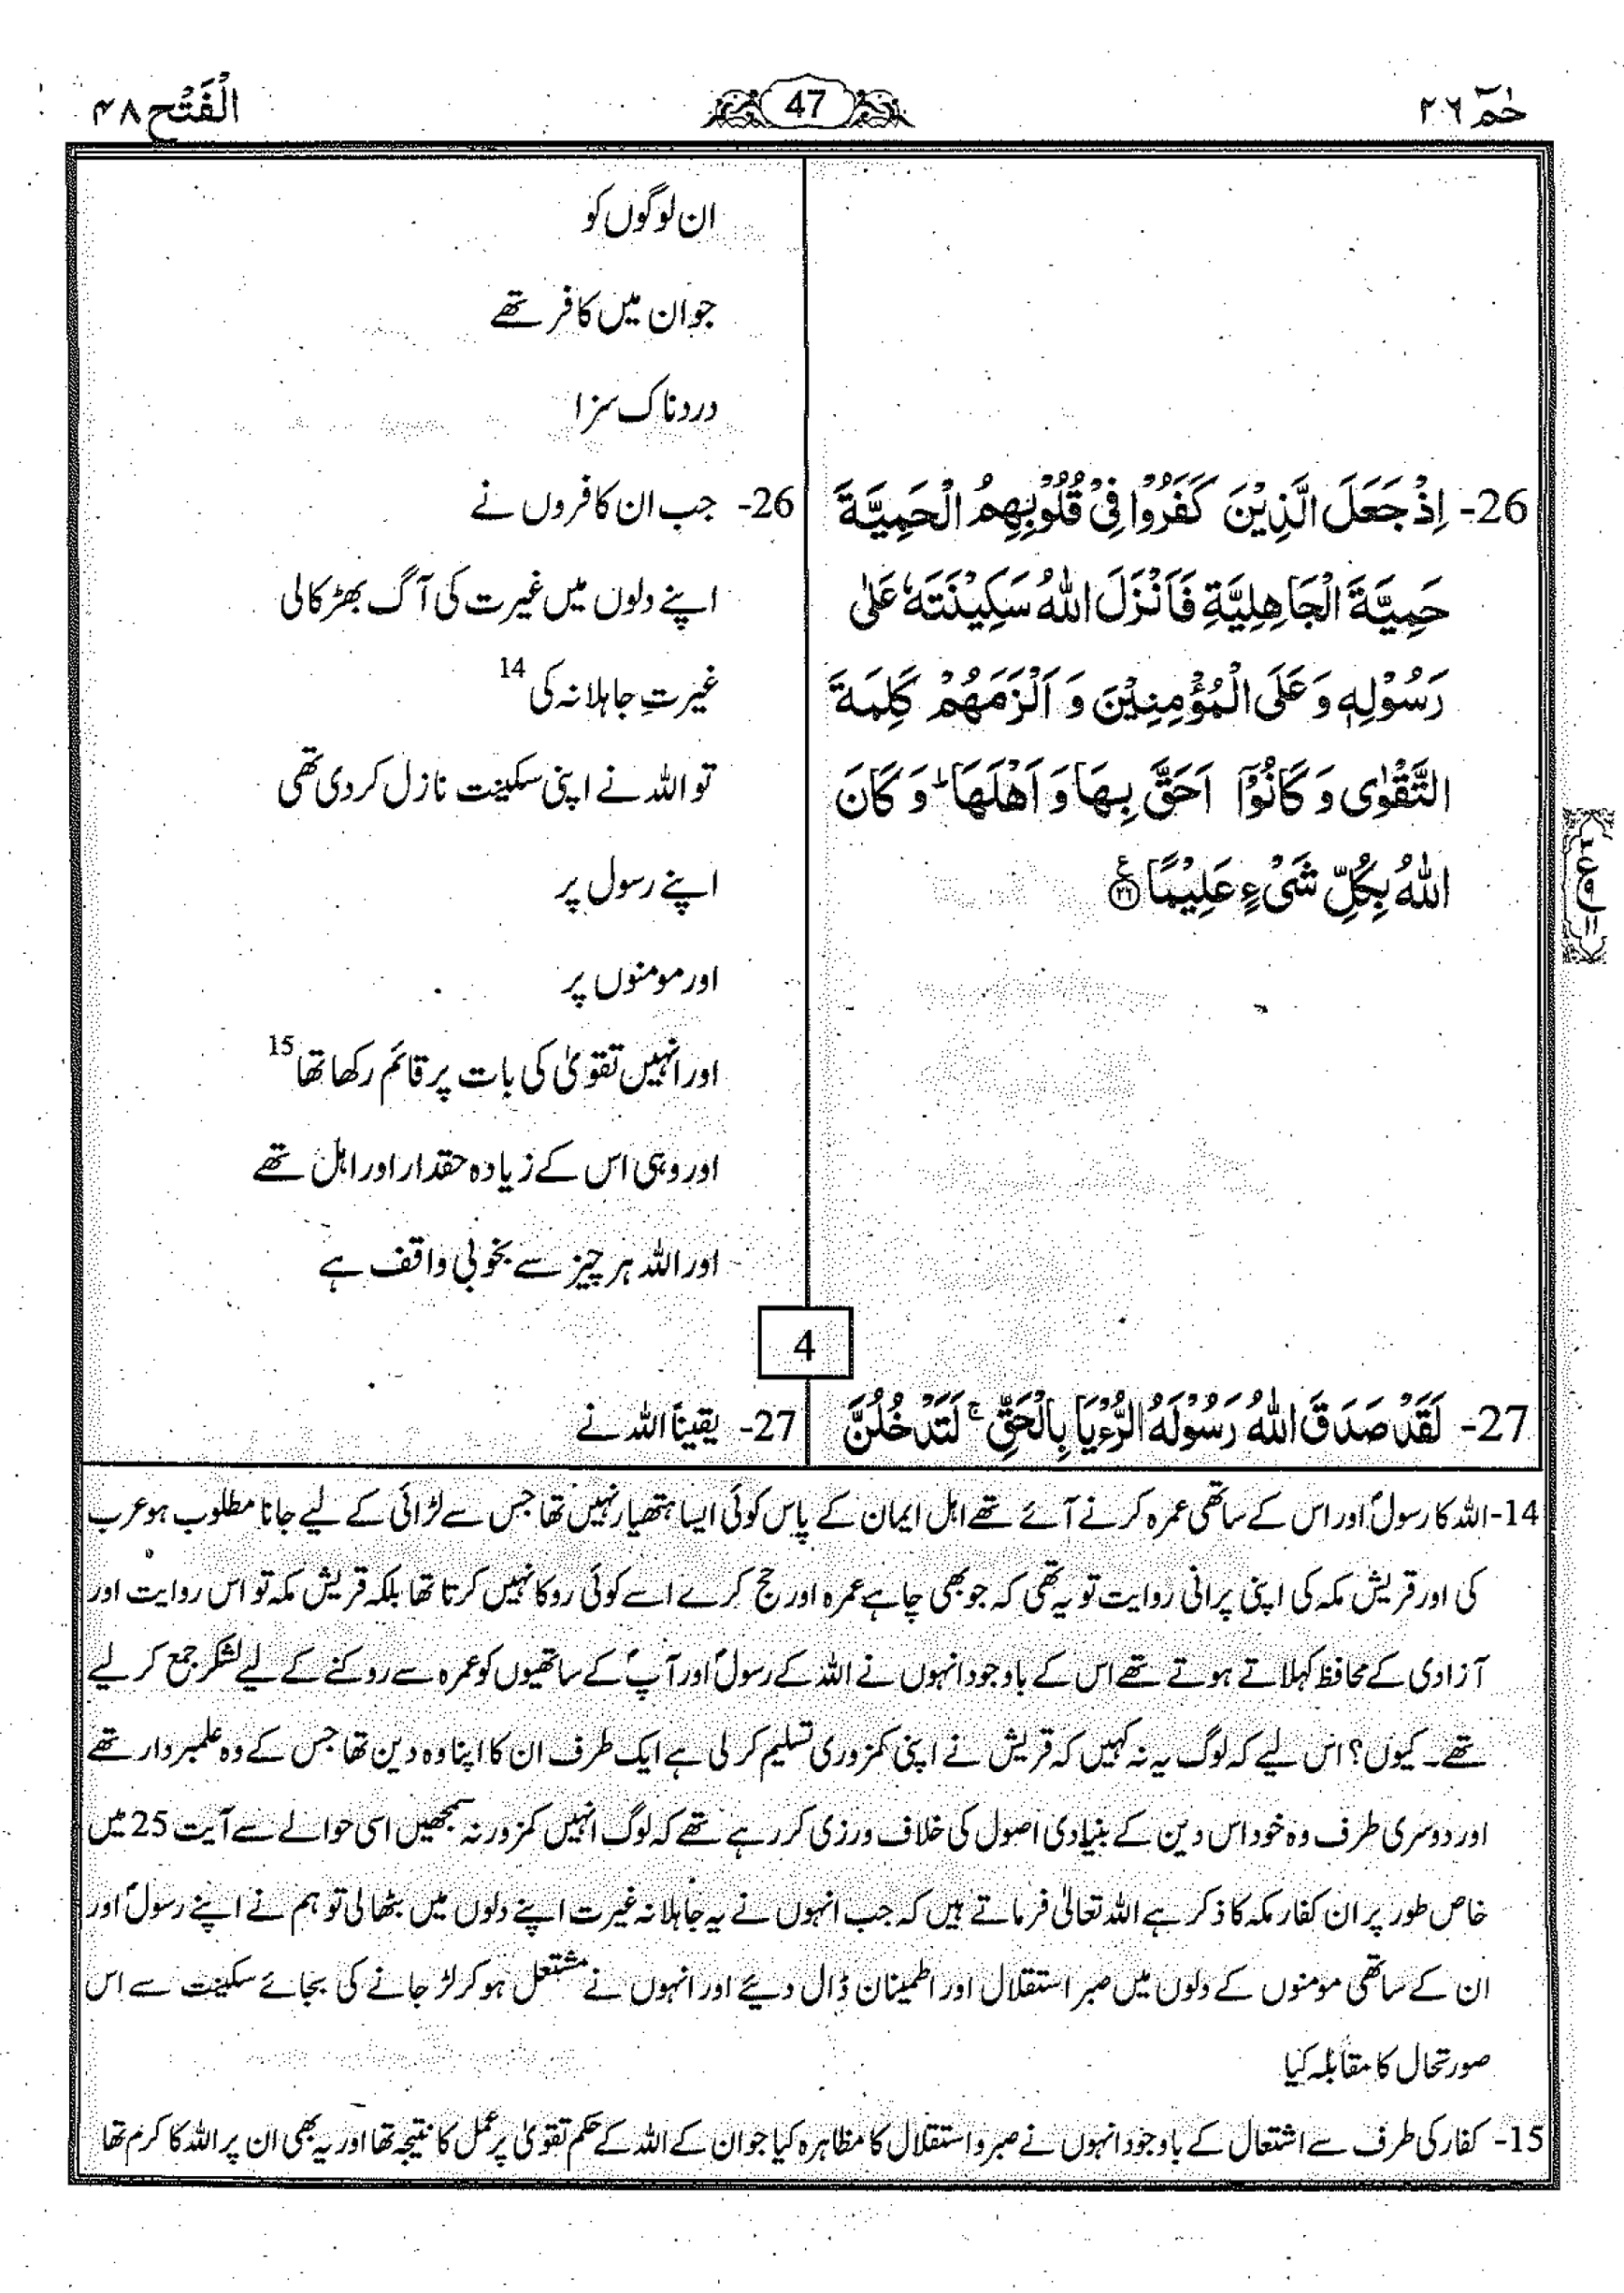 حٰمٓ ۲۶
47
الْفَتْح ۴۸
ان لوگوں کو
جو ان میں کافر تھے
دردناک سزا
26- اِذْ جَعَلَ الَّذِیْنَ كَفَرُوْا فِیْ قُلُوْبِهِمُ الْحَمِیَّةَ
حَمِیَّةَ الْجَاهِلِیَّةِ فَاَنْزَلَ اللّٰهُ سَكِیْنَتَهٗ عَلٰى
رَسُوْلِهٖ وَ عَلَى الْمُؤْمِنِیْنَ وَ اَلْزَمَهُمْ كَلِمَةَ
التَّقْوٰى وَ كَانُوْۤا اَحَقَّ بِهَا وَ اَهْلَهَا ؕ وَ كَانَ
اللّٰهُ بِكُلِّ شَیْءٍ عَلِیْمًا ۲۶
26- جب ان کافروں نے
اپنے دلوں میں غیرت کی آگ بھڑکالی
غیرتِ جاہلانہ کی 14
تو اللہ نے اپنی سکینت نازل کر دی تھی
اپنے رسول پر
اور مومنوں پر
اور انہیں تقویٰ کی بات پر قائم رکھا تھا 15
اور وہی اس کے زیادہ حقدار اور اہل تھے
اور اللہ ہر چیز سے بخوبی واقف ہے
4
27- لَقَدْ صَدَقَ اللّٰهُ رَسُوْلَهُ الرُّءْیَا بِالْحَقِّ ۚ لَتَدْخُلُنَّ
27- یقیناً اللہ نے
14- اللہ کا رسولؐ اور اس کے ساتھی عمرہ کرنے آئے تھے اہل ایمان کے پاس کوئی ایسا ہتھیار نہیں تھا جس سے لڑائی کے لیے جانا مطلوب ہو عرب
کی اور قریش مکہ کی اپنی پرانی روایت تو یہ تھی کہ جو بھی چاہے عمرہ اور حج کرے اسے کوئی روکا نہیں کرتا تھا بلکہ قریش مکہ تو اس روایت اور
آزادی کے محافظ کہلاتے ہوتے تھے اس کے باوجود انہوں نے اللہ کے رسولؐ اور آپؐ کے ساتھیوں کو عمرہ سے روکنے کے لیے لشکر جمع کر لیے
تھے۔ کیوں؟ اس لیے کہ لوگ یہ نہ کہیں کہ قریش نے اپنی کمزوری تسلیم کر لی ہے ایک طرف ان کا اپنا وہ دین تھا جس کے وہ علمبردار تھے
اور دوسری طرف وہ خود اس دین کے بنیادی اصول کی خلاف ورزی کر رہے تھے کہ لوگ انہیں کمزور نہ سمجھیں اسی حوالے سے آیت 25 میں
خاص طور پر ان کفار مکہ کا ذکر ہے اللہ تعالیٰ فرماتے ہیں کہ جب انہوں نے یہ جاہلانہ غیرت اپنے دلوں میں بٹھا لی تو ہم نے اپنے رسولؐ اور
ان کے ساتھی مومنوں کے دلوں میں صبر استقلال اور اطمینان ڈال دیئے اور انہوں نے مشتعل ہو کر لڑ جانے کی بجائے سکینت سے اس
صورتحال کا مقابلہ کیا
15- کفار کی طرف سے اشتعال کے باوجود انہوں نے صبر و استقلال کا مظاہرہ کیا جو ان کے اللہ کے حکم تقویٰ پر عمل کا نتیجہ تھا اور یہ بھی ان پر اللہ کا کرم تھا